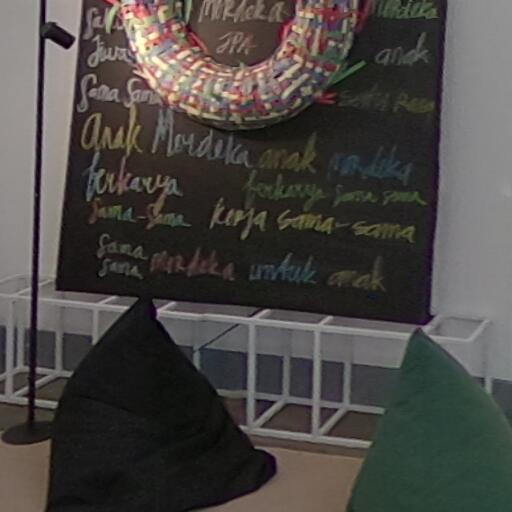 Merdeka Merdeka
JPA
Jiwa anak
Sama Sama
Anak Merdeka anak merdeka
berkarya berkarya sama sama
sama-sama kerja sama-sama
sama
sama merdeka untuk anak